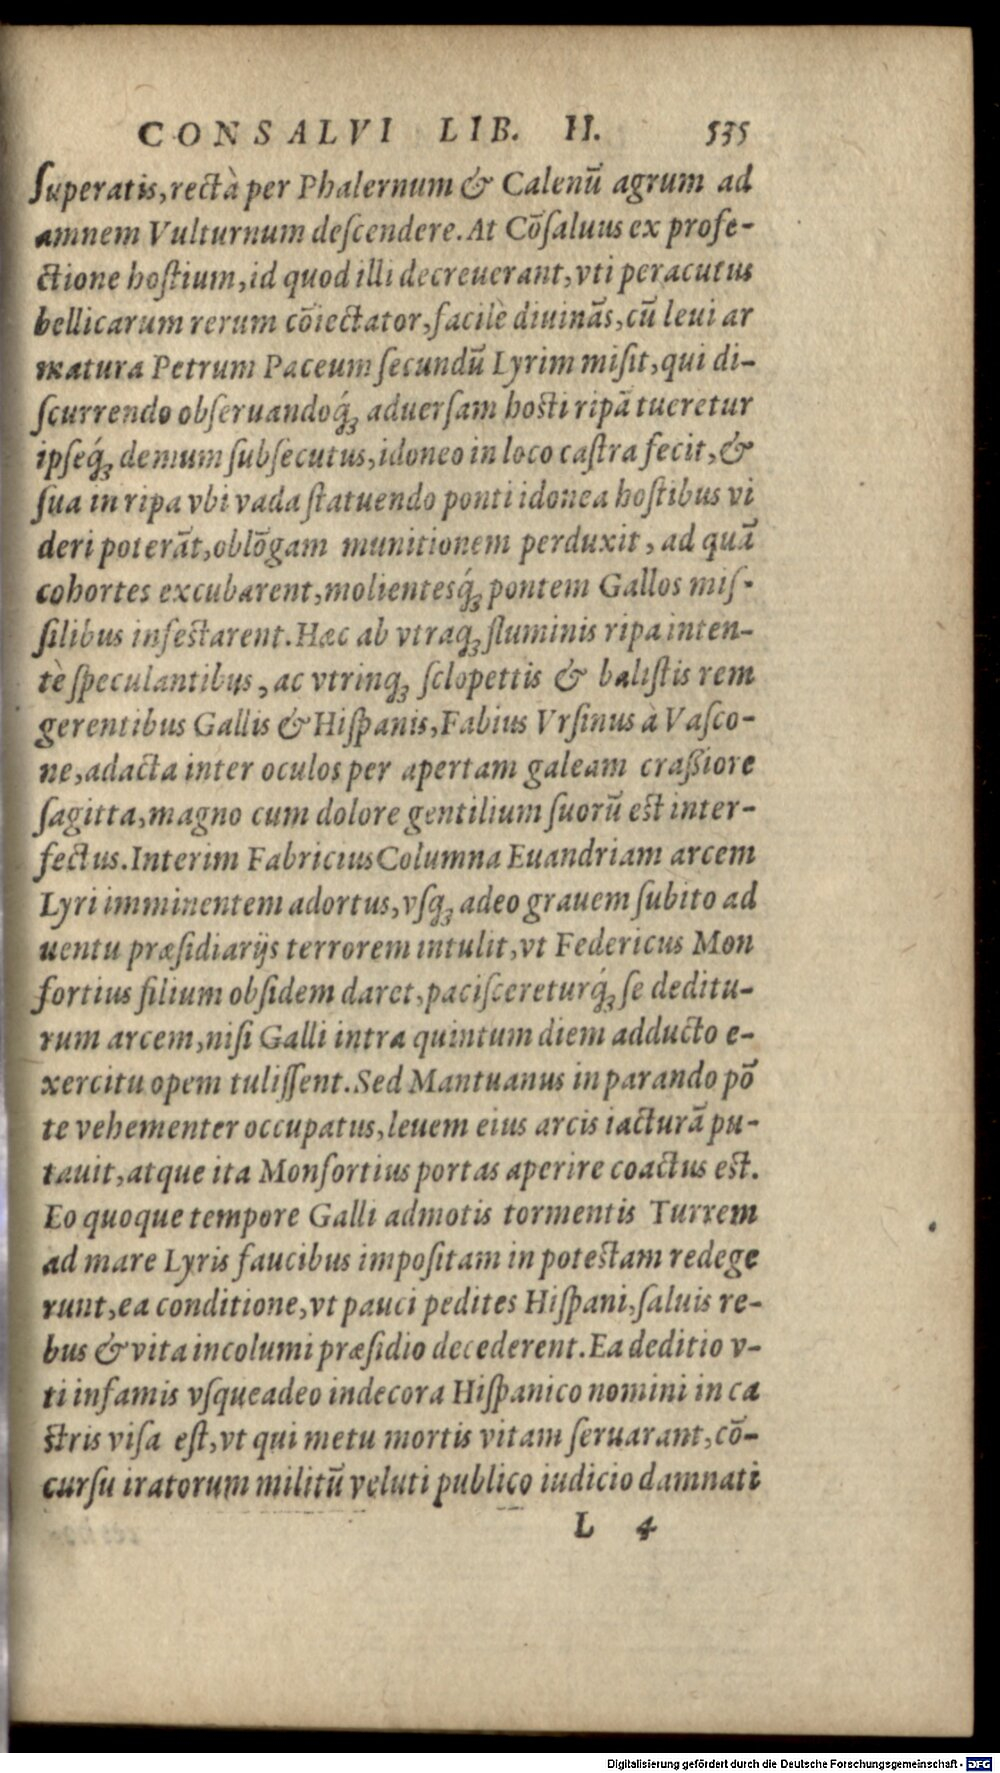 CONSALVI LIB. II. 535
ſuperatis, rectà per Phalernum & Calenū agrum ad
amnem Vulturnum deſcendere. At Cōſaluus ex profe-
ctione hoſtium, id quod illi decreuerant, vti peracutus
bellicarum rerum cōiectator, facilè diuinās, cū leui ar
matura Petrum Paceum ſecundū Lyrim miſit, qui di-
ſcurrendo obſeruandoq́ꝫ aduerſam hoſti ripā tueretur
ipſeq́ꝫ demum ſubſecutus, idoneo in loco caſtra fecit, &
ſua in ripa vbi vada ſtatuendo ponti idonea hoſtibus vi
deri poterāt, oblōgam munitionem perduxit, ad quā
cohortes excubarent, molientesq́ꝫ pontem Gallos miſ-
ſilibus infeſtarent. Hæc ab vtraqꝫ fluminis ripa inten-
tè ſpeculantibus, ac vtrinqꝫ ſclopettis & baliſtis rem
gerentibus Gallis & Hiſpanis, Fabius Vrſinus à Vaſco-
ne, adacta inter oculos per apertam galeam craßiore
ſagitta, magno cum dolore gentilium ſuorū eſt inter-
fectus. Interim Fabricius Columna Euandriam arcem
Lyri imminentem adortus, vſqꝫ adeo grauem ſubito ad
uentu præſidiarijs terrorem intulit, vt Federicus Mon
fortius filium obſidem daret, paciſcereturq́ꝫ ſe deditu-
rum arcem, niſi Galli intra quintum diem adducto e-
xercitu opem tuliſſent. Sed Mantuanus in parando pō
te vehementer occupatus, leuem eius arcis iacturā pu-
tauit, atque ita Monfortius portas aperire coactus eſt.
Eo quoque tempore Galli admotis tormentis Turrem
ad mare Lyris faucibus impoſitam in poteſtam redege
runt, ea conditione, vt pauci pedites Hiſpani, ſaluis re-
bus & vita incolumi præſidio decederent. Ea deditio v-
ti infamis vſqueadeo indecora Hiſpanico nomini in ca
ſtris viſa eſt, vt qui metu mortis vitam ſeruarant, cō-
curſu iratorum militū veluti publico iudicio damnati
L 4
Digitalisierung gefördert durch die Deutsche Forschungsgemeinschaft - DFG